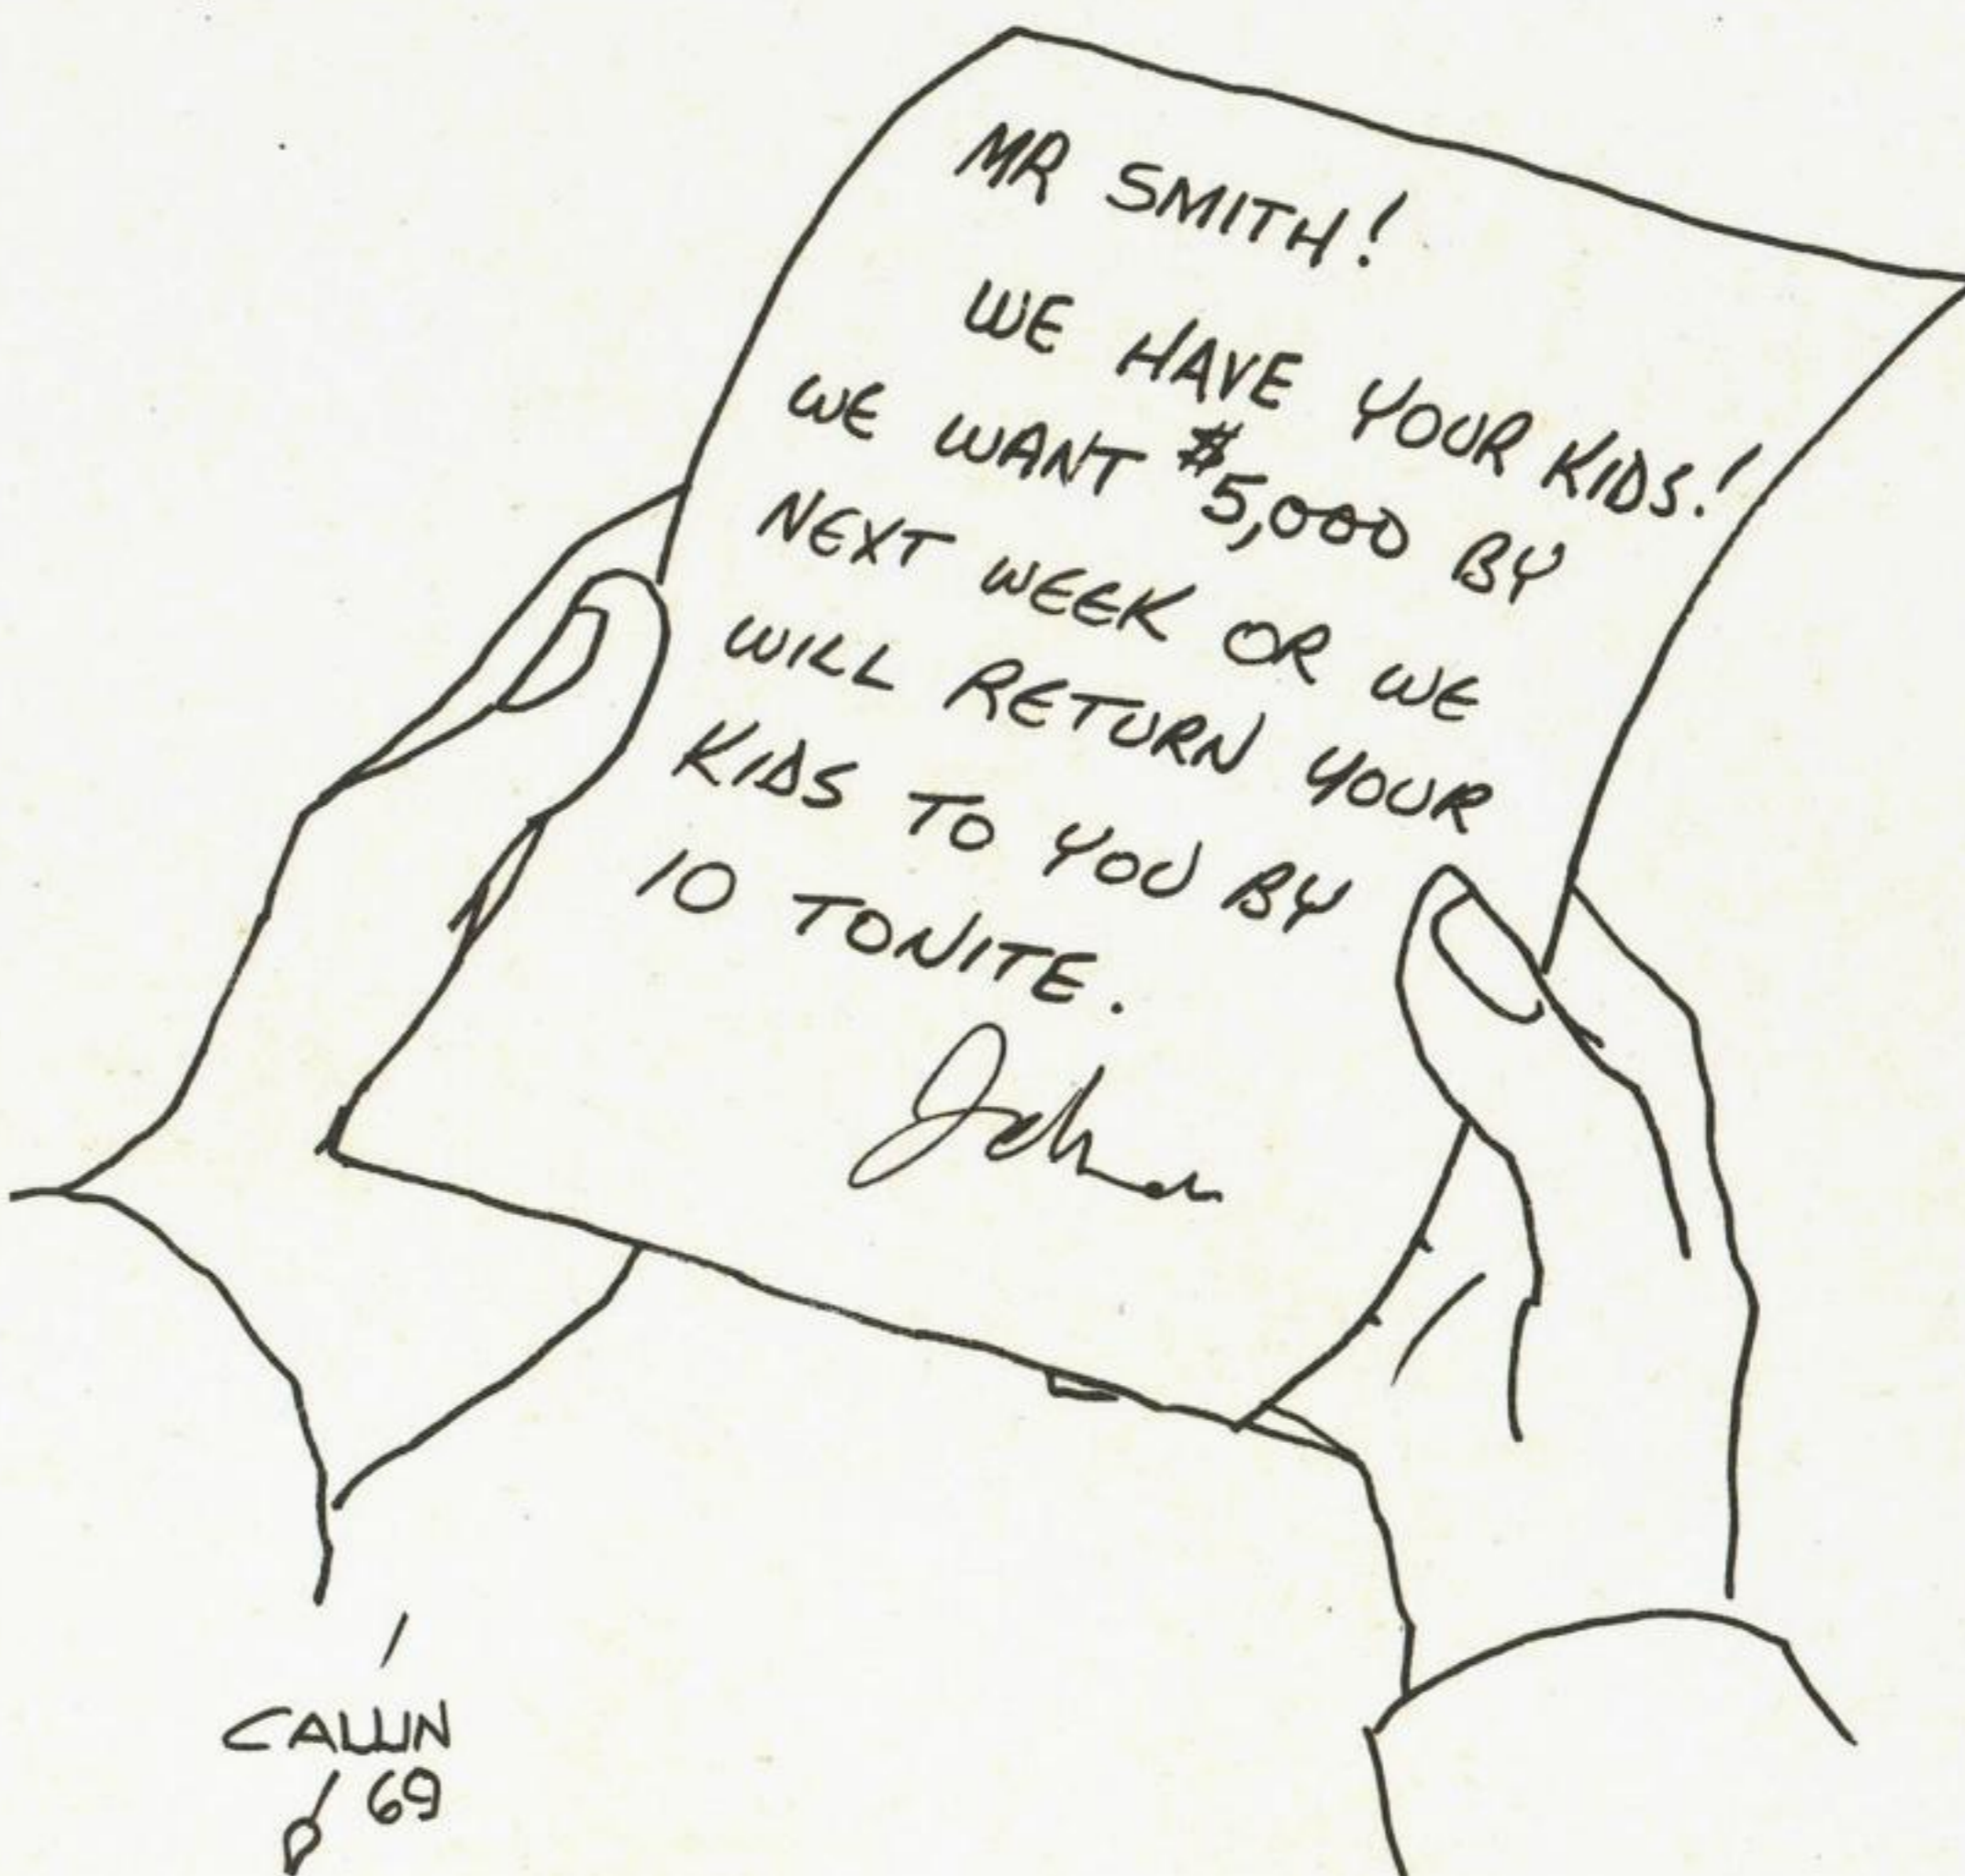 MR SMITH!
WE HAVE YOUR KIDS!
WE WANT $5,000 BY
NEXT WEEK OR WE
WILL RETURN YOUR
KIDS TO YOU BY
10 TONITE.
John
CALLIN
69